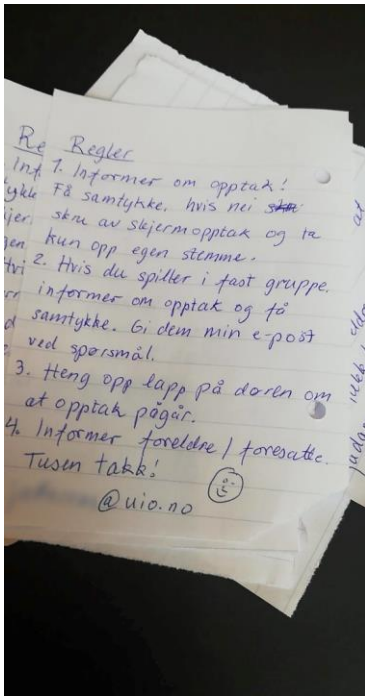 Regler
1. Informer om opptak!
Få samtykke, hvis nei
skru av skjermopptak og ta
kun opp egen stemme.
2. Hvis du spiller i fast gruppe.
informer om opptak og få
samtykke. Gi dem min e-post
ved spørsmål.
3. Heng opp lapp på døren om
at opptak pågår.
4. Informer foreldre / foresatte.
Tusen takk!
@uio.no